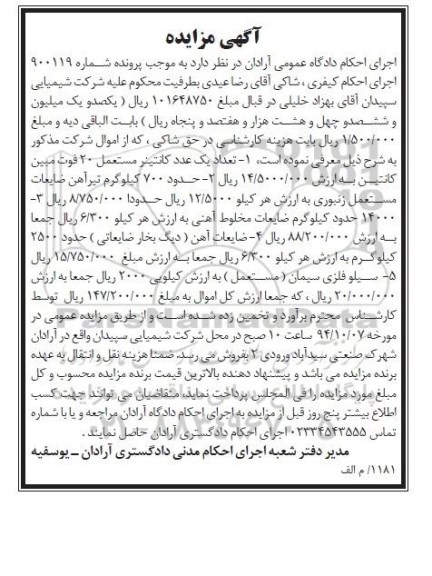 آگهی مزایده
اجرای احکام دادگاه عمومی آرادان در نظر دارد به موجب پرونده شماره ۹۰۰۱۱۹
اجرای احکام کیفری ، شاکی آقای رضا عیدی بطرفیت محکوم علیه شرکت شیمیایی
سپیدان آقای بهزاد خلیلی در قبال مبلغ ۱۰۱۶۴۸۷۵۰ ریال ( یکصدو یک میلیون
و ششصدو چهل و هشت هزار و هفتصد و پنجاه ریال ) بابت الباقی دیه و مبلغ
۱/۵۰۰/۰۰۰ ریال بابت هزینه کارشناسی در حق شاکی ، که از اموال شرکت مذکور
به شرح ذیل معرفی نموده است، ۱- تعداد یک عدد کانتینر مستعمل ۲۰ فوت مبین
کانتین به ارزش ۱۴/۵۰۰۰/۰۰۰ ریال ۲- حدود ۷۰۰ کیلوگرم تیرآهن ضایعات
مستعمل زنبوری به ارزش هر کیلو ۱۲/۵۰۰۰ ریال حدودا ۸/۷۵۰/۰۰۰ ریال ۳-
۱۴۰۰۰ حدود کیلوگرم ضایعات مخلوط آهنی به ارزش هر کیلو ۶/۳۰۰ ریال جمعا
به ارزش ۸۸/۲۰۰/۰۰۰ ریال ۴- ضایعات آهن ( دیگ بخار ضایعاتی ) حدود ۲۵۰۰
کیلوگرم به ارزش هر کیلو ۶/۳۰۰ ریال جمعا به ارزش مبلغ ۱۵/۷۵۰/۰۰۰ ریال
۵- سیلو فلزی سیمان ( مستعمل ) به ارزش کیلویی ۲۰۰۰ ریال جمعا به ارزش
۲۰/۰۰۰/۰۰۰ ریال ، که جمعا ارزش کل اموال به مبلغ ۱۴۷/۲۰۰/۰۰۰ ریال توسط
کارشناس محترم برآورد و تخمین زده شده است و از طریق مزایده عمومی در
مورخه ۹۴/۱۰/۰۷ ساعت ۱۰ صبح در محل شرکت شیمیایی سپیدان واقع در آرادان
شهرک صنعتی سیدآباد ورودی ۲ بفروش می رسد. ضمنا هزینه نقل و انتقال به عهده
برنده مزایده می باشد و پیشنهاد دهنده بالاترین قیمت برنده مزایده محسوب و کل
مبلغ مورد مزایده را فی المجلس پرداخت نماید، متقاضیان می توانند جهت کسب
اطلاع بیشتر پنج روز قبل از مزایده به اجرای احکام دادگاه آرادان مراجعه و یا با شماره
تماس ۰۲۳۳۴۵۴۳۵۵۵ اجرای احکام دادگستری آرادان حاصل نمایند .
مدیر دفتر شعبه اجرای احکام مدنی دادگستری آرادان - یوسفیه
۱۱۸۱/ م الف